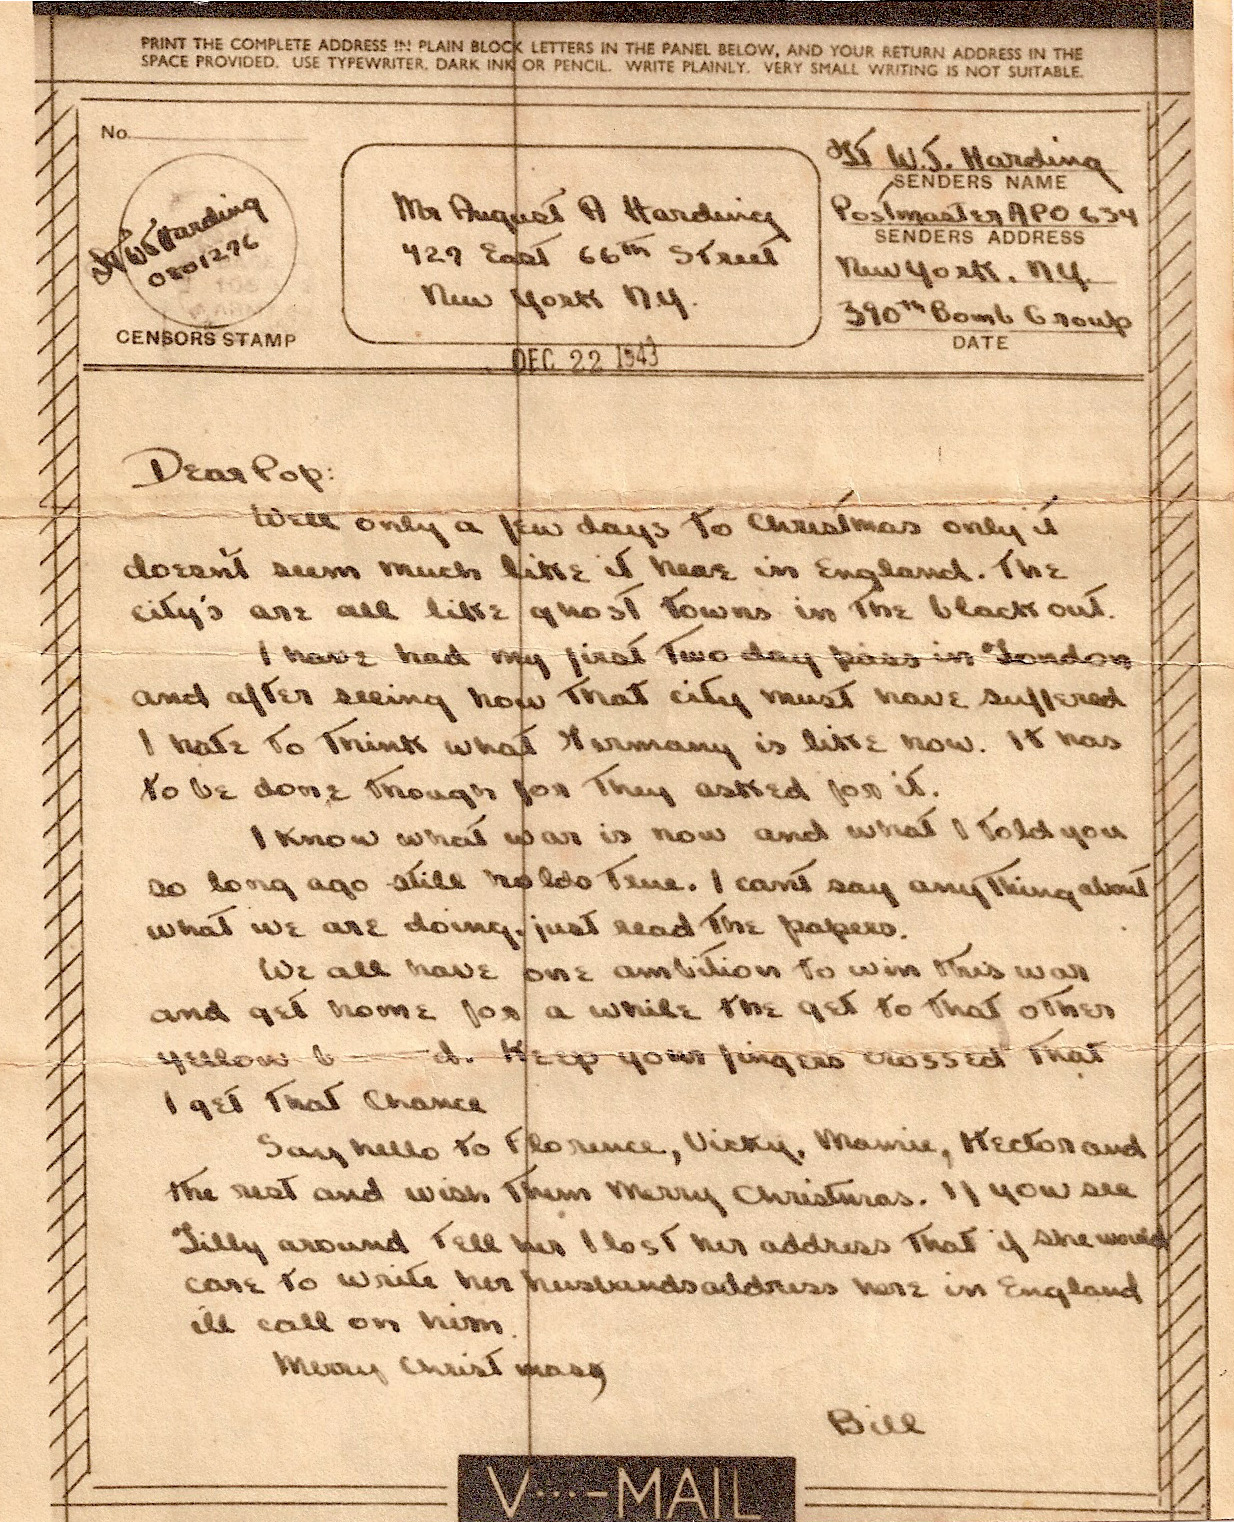 PRINT THE COMPLETE ADDRESS IN PLAIN BLOCK LETTERS IN THE PANEL BELOW, AND YOUR RETURN ADDRESS IN THE
SPACE PROVIDED. USE TYPEWRITER, DARK INK OR PENCIL. WRITE PLAINLY. VERY SMALL WRITING IS NOT SUITABLE.
No.
Lt W.J. Harding
0801276
CENSORS STAMP
Mr August A Harding
429 East 66th Street
New York N.Y.
DEC 22 1943
Lt W.J. Harding
SENDERS NAME
Postmaster APO 634
SENDERS ADDRESS
New York, N.Y.
390th Bomb Group
DATE
Dear Pop:
Well only a few days to Christmas only it
doesn't seem much like it here in England. The
city's are all like ghost towns in the black out.
I have had my first two day pass in London
and after seeing how that city must have suffered
I hate to think what Germany is like now. It has
to be done though for they asked for it.
I know what war is now and what I told you
so long ago still holds true. I can't say anything about
what we are doing, just read the papers.
We all have one ambition to win this war
and get home for a while the get to that other
yellow b——d. Keep your fingers crossed that
I get that chance
Say hello to Florence, Vicky, Mamie, Hector and
the rest and wish them Merry Christmas. If you see
Tilly around tell her I lost her address that if she would
care to write her husbands address here in England
ill call on him.
Merry Christmas,
Bill
V...-MAIL